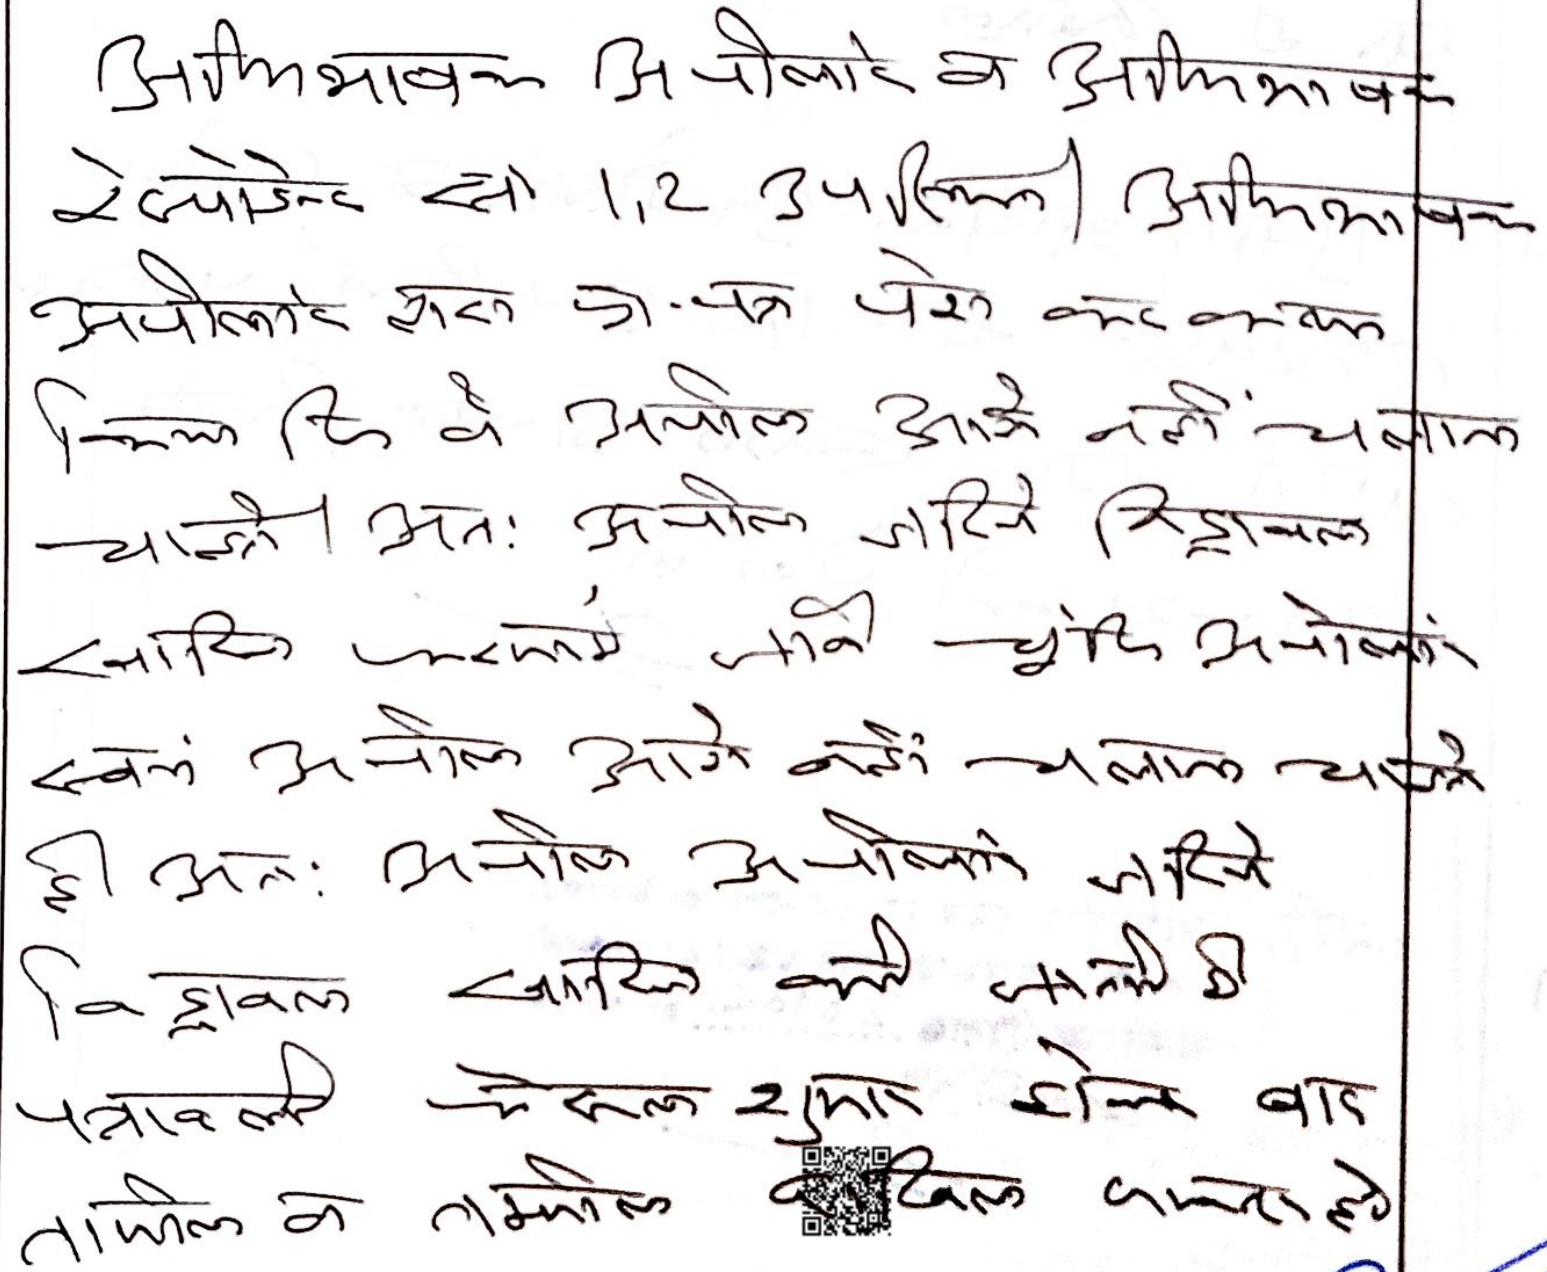 अभिभाषक अपीलांट व अभिभाषक
रेस्पोडेन्ट सं० 1,2 उपस्थित। अभिभाषक
अपीलांट द्वारा प्रा.पत्र पेश कर कथन
किया कि वे अपील आगे नहीं चलाना
चाहते। अतः अपील जरिये विड्रावल
खारिज फरमाई जावे चूंकि अपीलांट
स्वयं अपील आगे नहीं चलाना चाहते
है। अतः अपील अपीलांट जरिये
विड्रावल खारिज की जाती है
पत्रावली फैसल शुमार होकर बाद
तामील व तकमील दाखिल दफ्तर हो